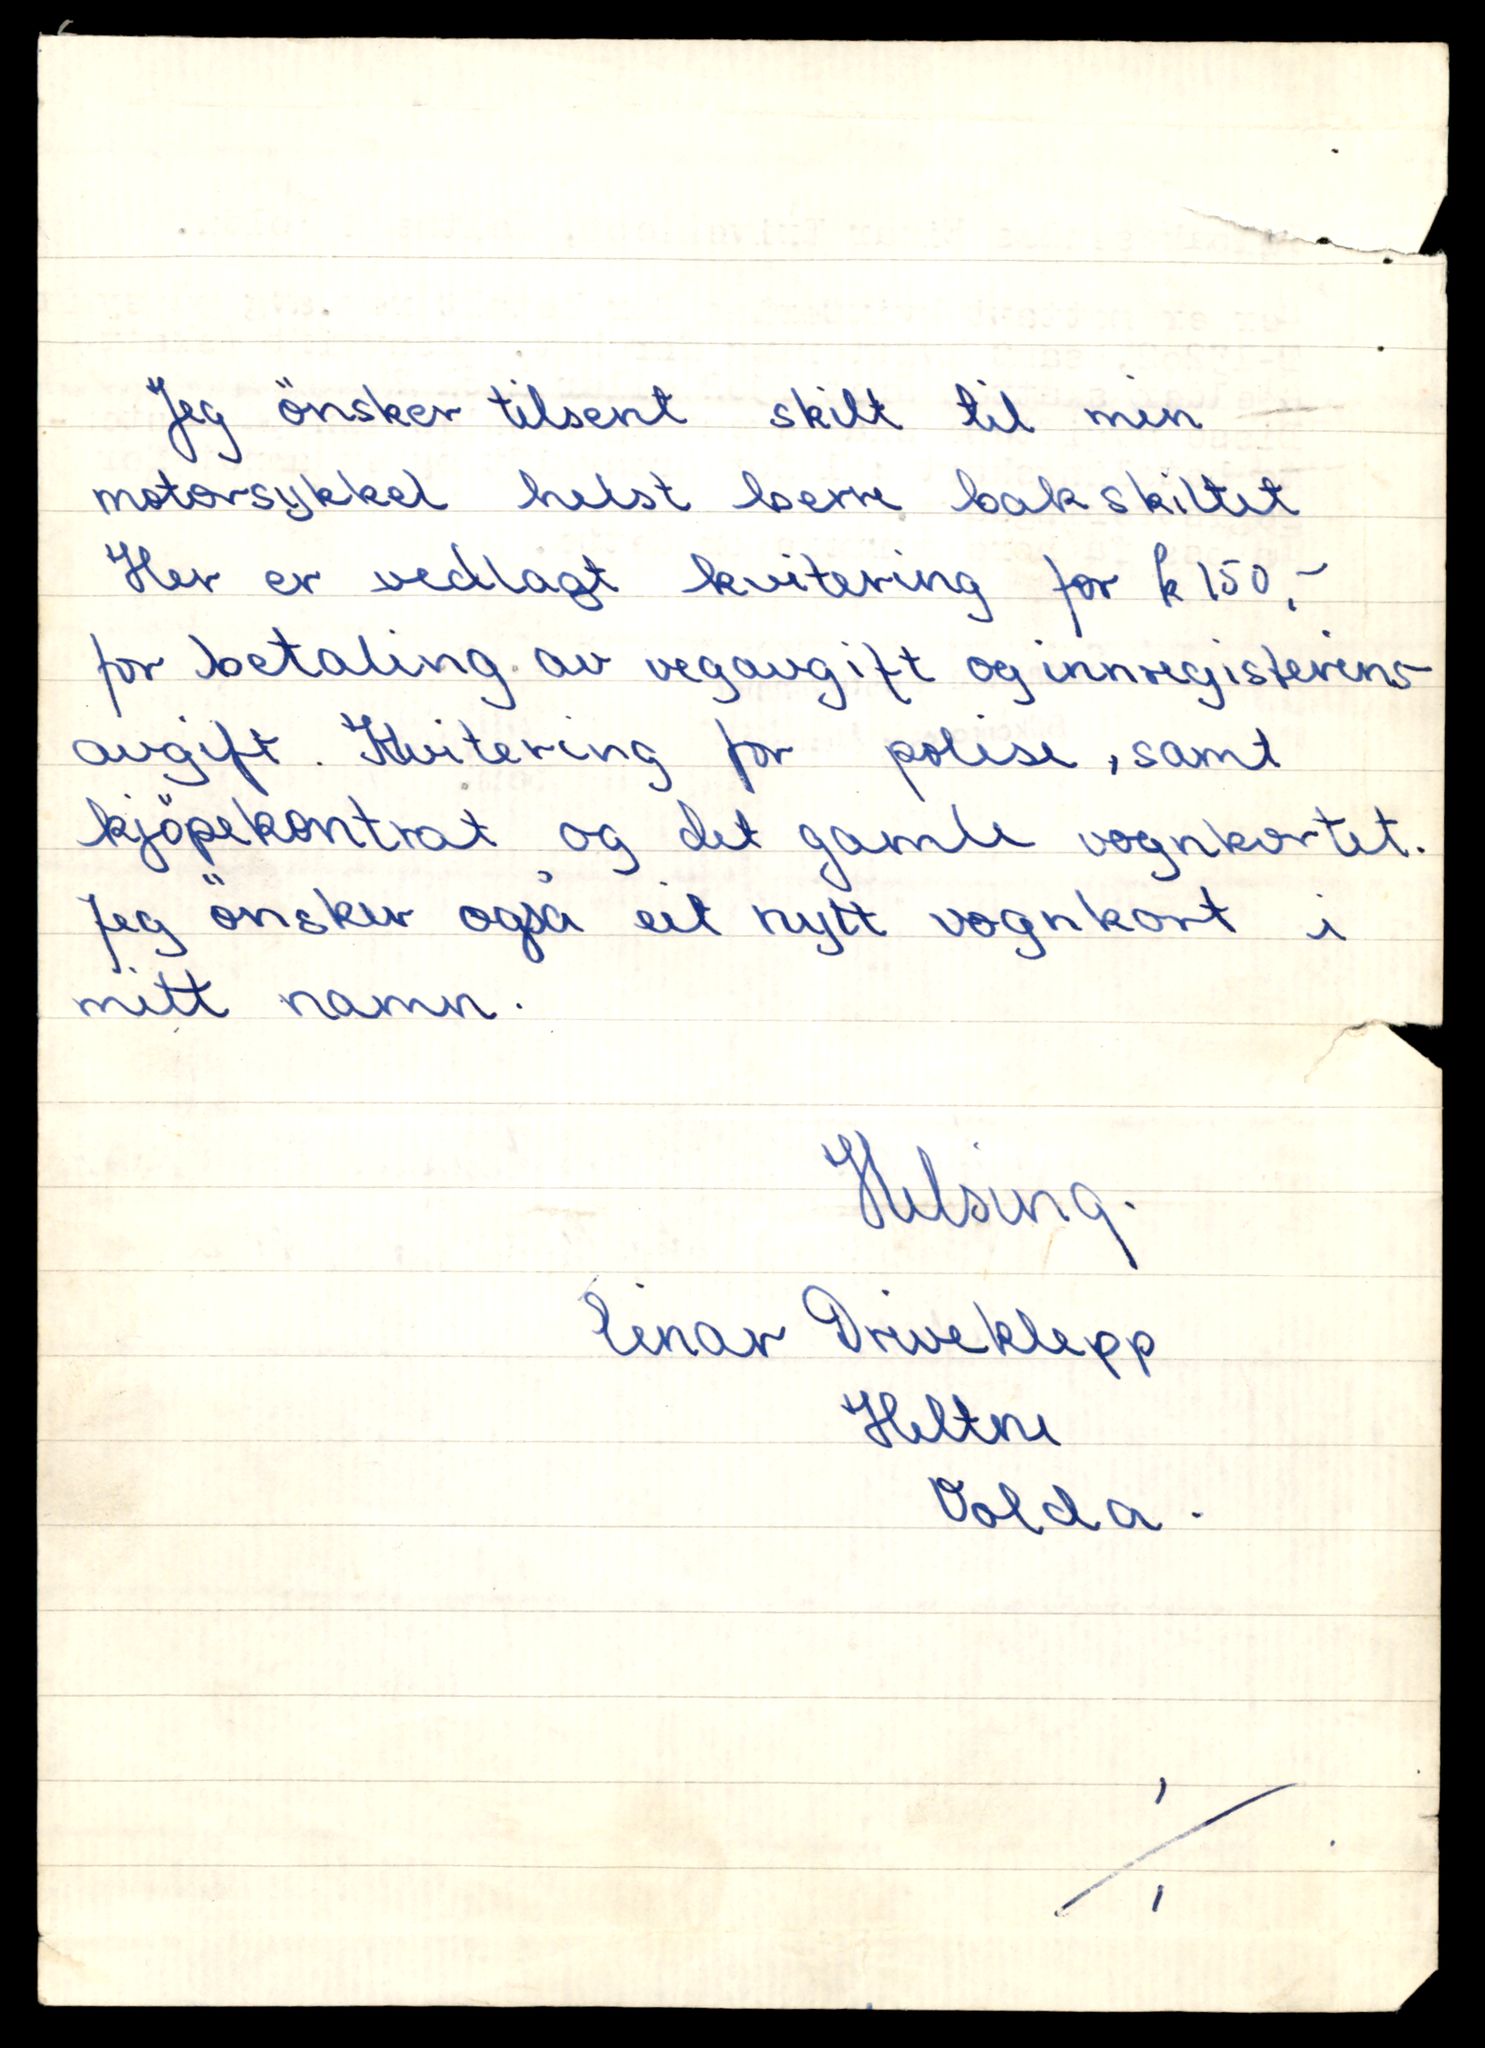 Jeg önsker tilsent skilt til min
motorsykkel helst berre bakskiltet
Her er vedlagt kvitering for k 150,-
for betaling av vegavgift og innregisterins-
avgift. Kvitering for polise, samt
kjöpekontrat og det gamle vognkortet.
Jeg önsker også eit nytt vognkort i
mitt namn.
Helsing.
Einar Driveklepp
Heltne
Volda.